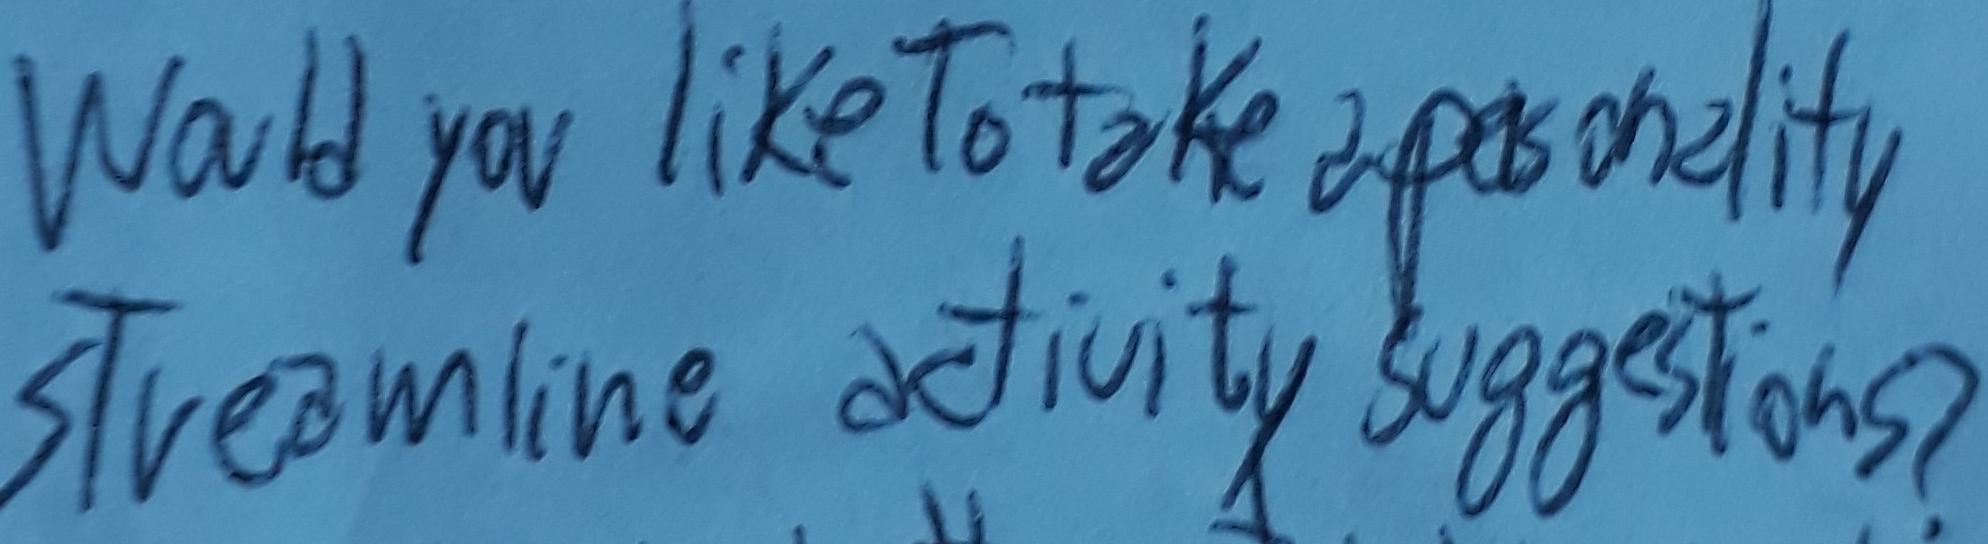 Would you like To take a personality
sTreamline activity suggesTions?